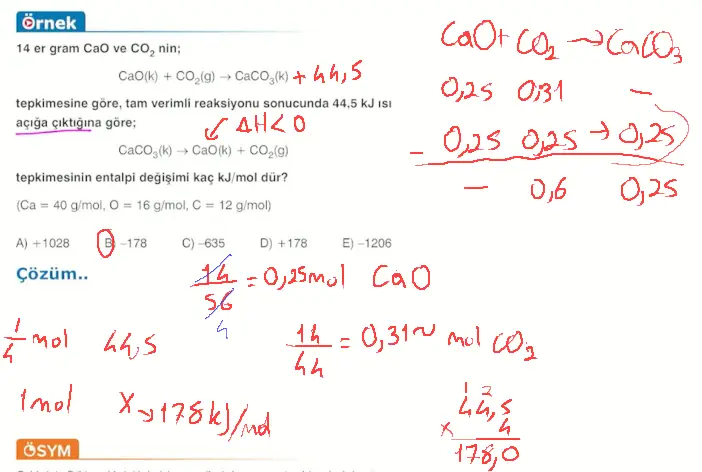 Örnek
14 er gram CaO ve CO₂ nin;
CaO(k) + CO₂(g) → CaCO₃(k) + 44,5
tepkimesine göre, tam verimli reaksiyonu sonucunda 44,5 kJ ısı
açığa çıktığına göre;
ΔH<0
CaCO₃(k) → CaO(k) + CO₂(g)
tepkimesinin entalpi değişimi kaç kJ/mol dür?
(Ca = 40 g/mol, O = 16 g/mol, C = 12 g/mol)
A) +1028 B) –178 C) –635 D) +178 E) –1206
CaO + CO₂ → CaCO₃
0,25 0,31 –
– 0,25 0,25 → 0,25
– 0,6 0,25
Çözüm..
14/56 = 0,25mol CaO
4
1/4 mol 44,5
14/44 = 0,31~ mol CO₂
1mol X → 178 kJ/mol
1 2
44,5
x 4
178,0
ÖSYM